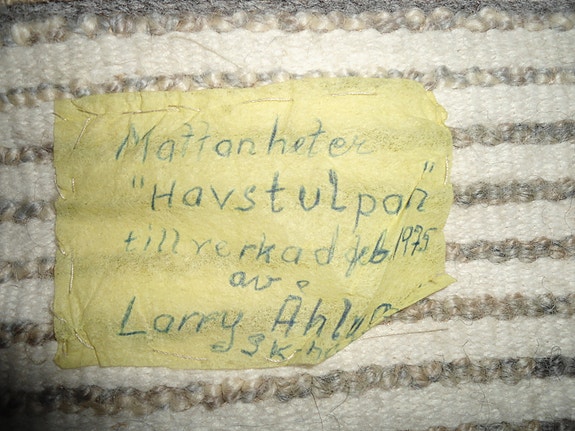 Mattan heter
"Havstulpan"
tillverkad feb. 1975
av:
Larry